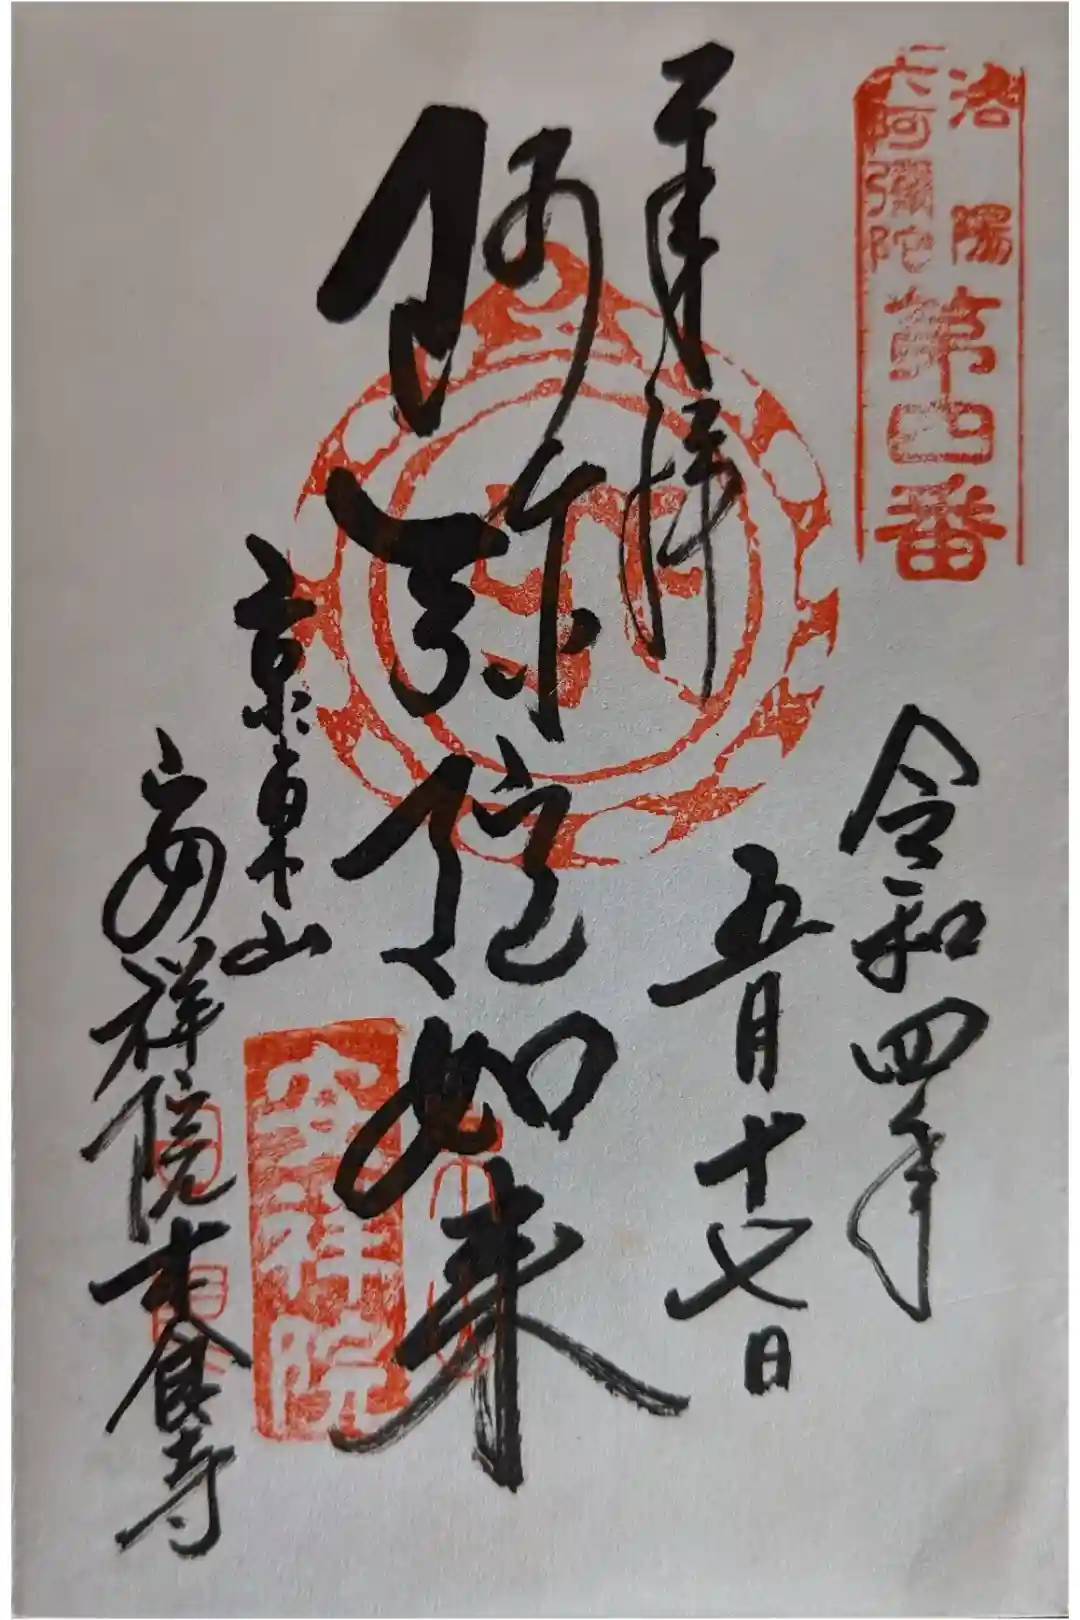 洛陽
六阿彌陀
第四番
令和四年
五月十七日
奉拝
阿弥陀如来
安祥院
京東山
安祥院木食寺